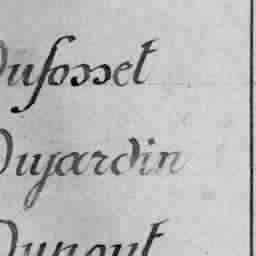 Dufosset
Dujardin